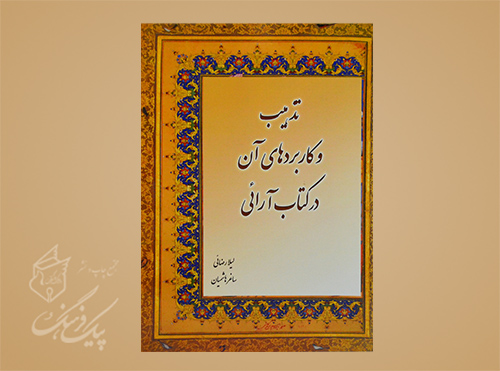 تذهیب
و کاربردهای آن
در کتاب آرائی
لیلا رضائی
ساغر هاشمیان
پیک فرهنگ